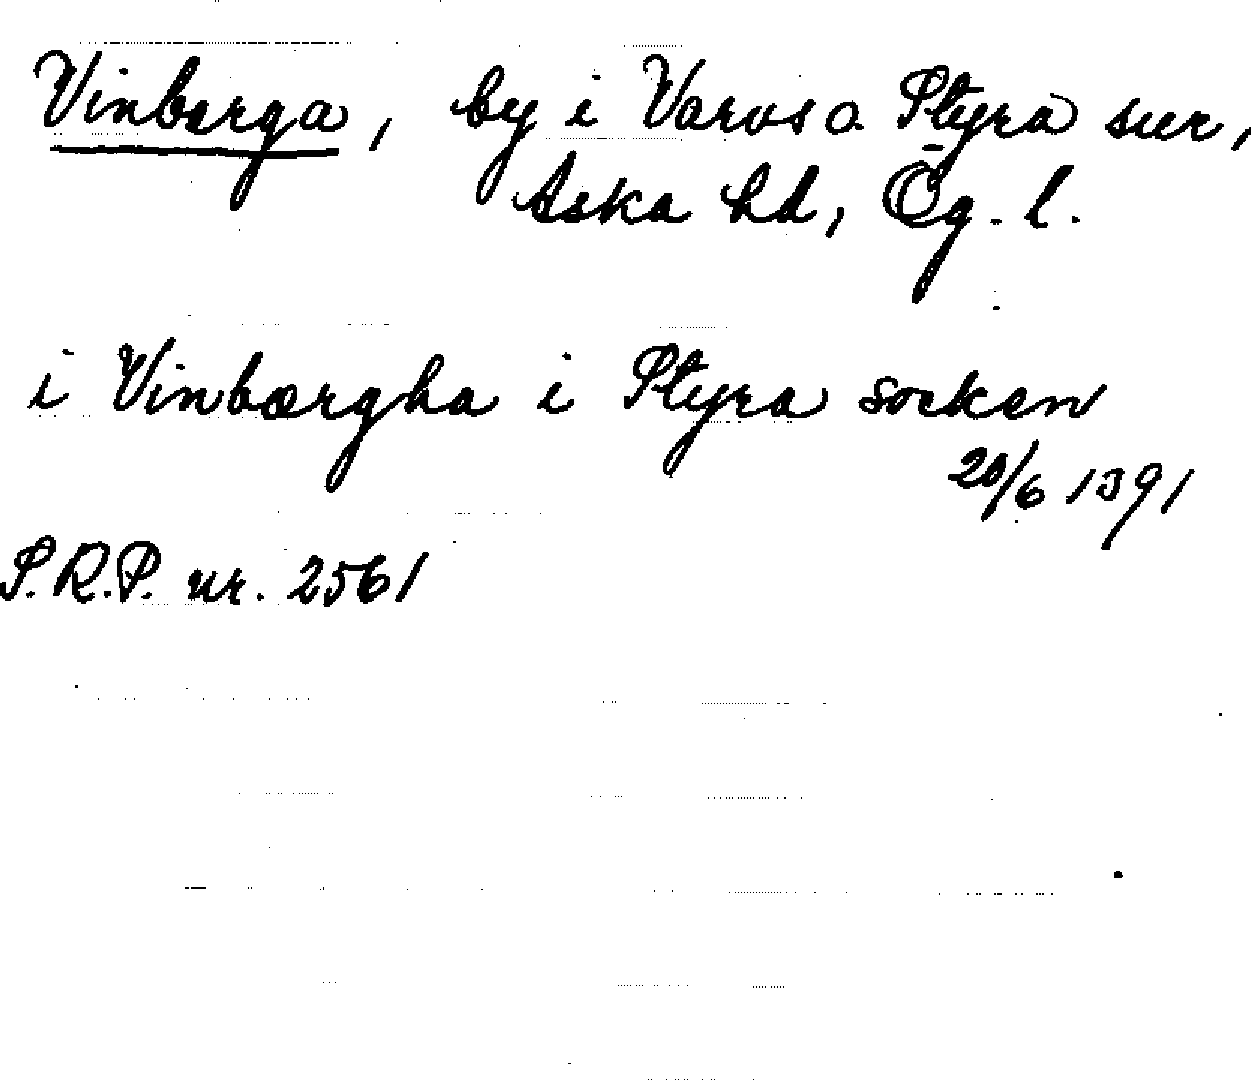 Vinberga, by i Varvs o Styra snr,
Aska hd, Ög. l.
i Vinbærgha i Styra socken
20/6 1391
S.R.P. nr. 2561